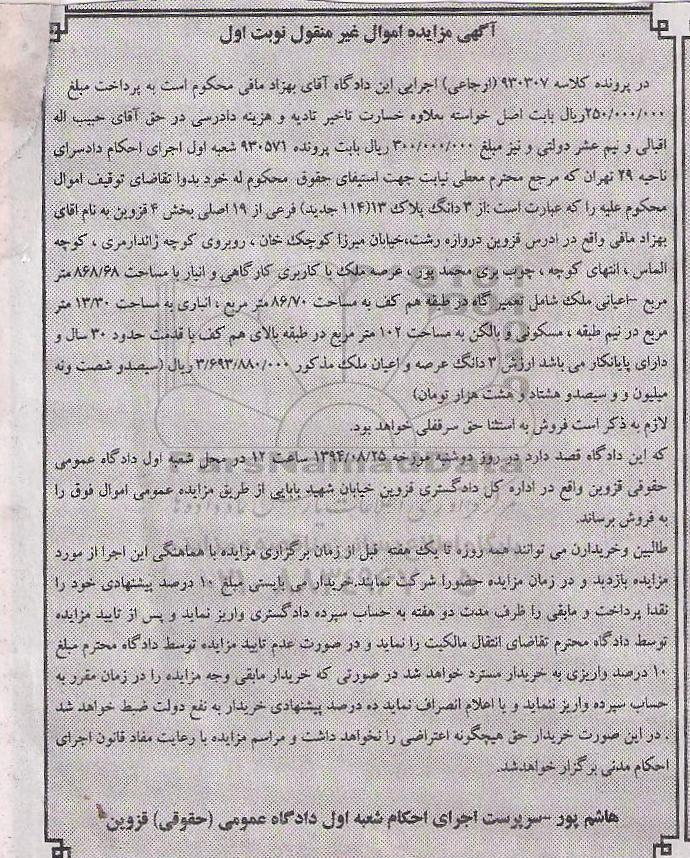 آگهی مزایده اموال غیر منقول نوبت اول
در پرونده کلاسه ۹۳۰۳۰۷ (ارجاعی) اجرایی این دادگاه آقای بهزاد مافی محکوم است به پرداخت مبلغ
۲۵۰/۰۰۰/۰۰۰ریال بابت اصل خواسته بعلاوه خسارت تاخیر تادیه و هزینه دادرسی در حق آقای حبیب اله
اقبالی و نیم عشر دولتی و نیز مبلغ ۳۰۰/۰۰۰/۰۰۰ ریال بابت پرونده ۹۳۰۵۷۱ شعبه اول اجرای احکام دادسرای
ناحیه ۲۹ تهران که مرجع محترم معطی نیابت جهت استیفای حقوق محکوم له خود بدوا تقاضای توقیف اموال
محکوم علیه را که عبارت است :از ۳ دانگ پلاک ۱۳(۱۱۴ جدید) فرعی از ۱۹ اصلی بخش ۴ قزوین به نام اقای
بهزاد مافی واقع در ادرس قزوین دروازه رشت،خیابان میرزا کوچک خان ، روبروی کوچه ژاندارمری ، کوچه
الماس ، انتهای کوچه ، چوب بری محمد پور ، عرصه ملک با کاربری کارگاهی و انبار با مساحت ۸۶۸/۶۸ متر
مربع –اعیانی ملک شامل تعمیر گاه در طبقه هم کف به مساحت ۸۶/۷۰ متر مربع ، انباری به مساحت ۱۳/۳۰ متر
مربع در نیم طبقه ، مسکونی و بالکن به مساحت ۱۰۲ متر مربع در طبقه بالای هم کف با قدمت حدود ۳۰ سال و
دارای پایانکار می باشد ارزش ۳ دانگ عرصه و اعیان ملک مذکور ۳/۶۹۳/۸۸۰/۰۰۰ ریال (سیصدو شصت ونه
میلیون و و سیصدو هشتاد و هشت هزار تومان)
لازم به ذکر است فروش به استثنا حق سرقفلی خواهد بود.
که این دادگاه قصد دارد در روز دوشنبه مورخه ۱۳۹۴/۰۸/۲۵ ساعت ۱۲ در محل شعبه اول دادگاه عمومی
حقوقی قزوین واقع در اداره کل دادگستری قزوین خیابان شهید بابایی از طریق مزایده عمومی اموال فوق را
به فروش برساند.
طالبین وخریدارن می توانند همه روزه تا یک هفته قبل از زمان برگزاری مزایده با هماهنگی این اجرا از مورد
مزایده بازدید و در زمان مزایده حضورا شرکت نمایند.خریدار می بایستی مبلغ ۱۰ درصد پیشنهادی خود را
نقدا پرداخت و مابقی را ظرف مدت دو هفته به حساب سپرده دادگستری واریز نماید و پس از تایید مزایده
توسط دادگاه محترم تقاضای انتقال مالکیت را نماید و در صورت عدم تایید مزایده توسط دادگاه محترم مبلغ
۱۰ درصد واریزی به خریدار مسترد خواهد شد در صورتی که خریدار مابقی وجه مزایده را در زمان مقرر به
حساب سپرده واریز ننماید و یا اعلام انصراف نماید ده درصد پیشنهادی خریدار به نفع دولت ضبط خواهد شد
. در این صورت خریدار حق هیچگونه اعتراضی را نخواهد داشت و مراسم مزایده با رعایت مفاد قانون اجرای
احکام مدنی برگزار خواهدشد.
هاشم پور –سرپرست اجرای احکام شعبه اول دادگاه عمومی (حقوقی) قزوین
ParsNamadData